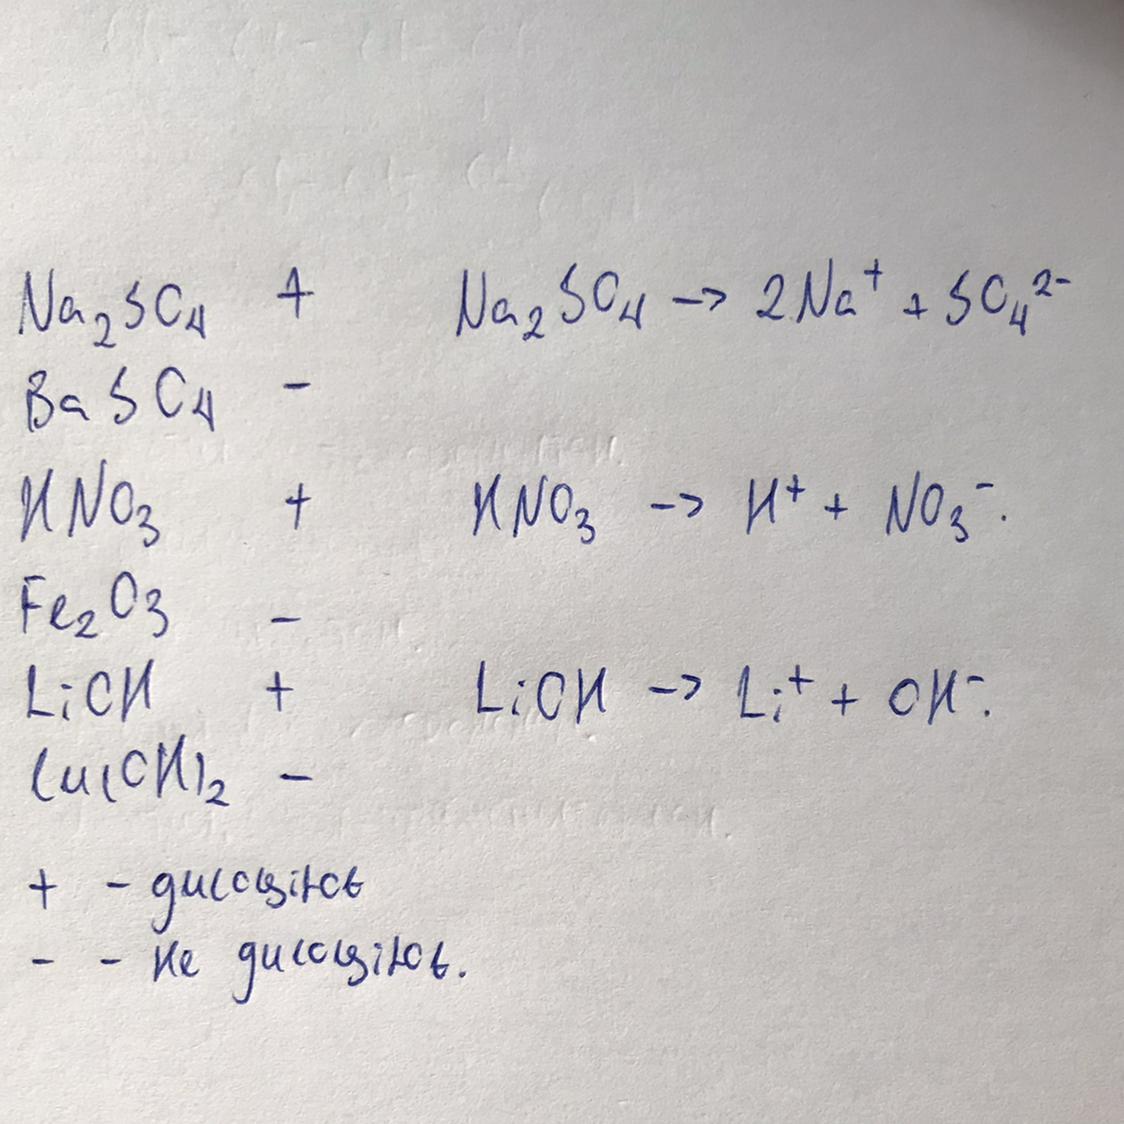 Na₂SO₄ + Na₂SO₄ -> 2Na⁺ + SO₄²⁻
BaSO₄ -
HNO₃ + HNO₃ -> H⁺ + NO₃⁻.
Fe₂O₃ -
LiOH + LiOH -> Li⁺ + OH⁻.
Cu(OH)₂ -
+ - дисоціює
- - не дисоціює.